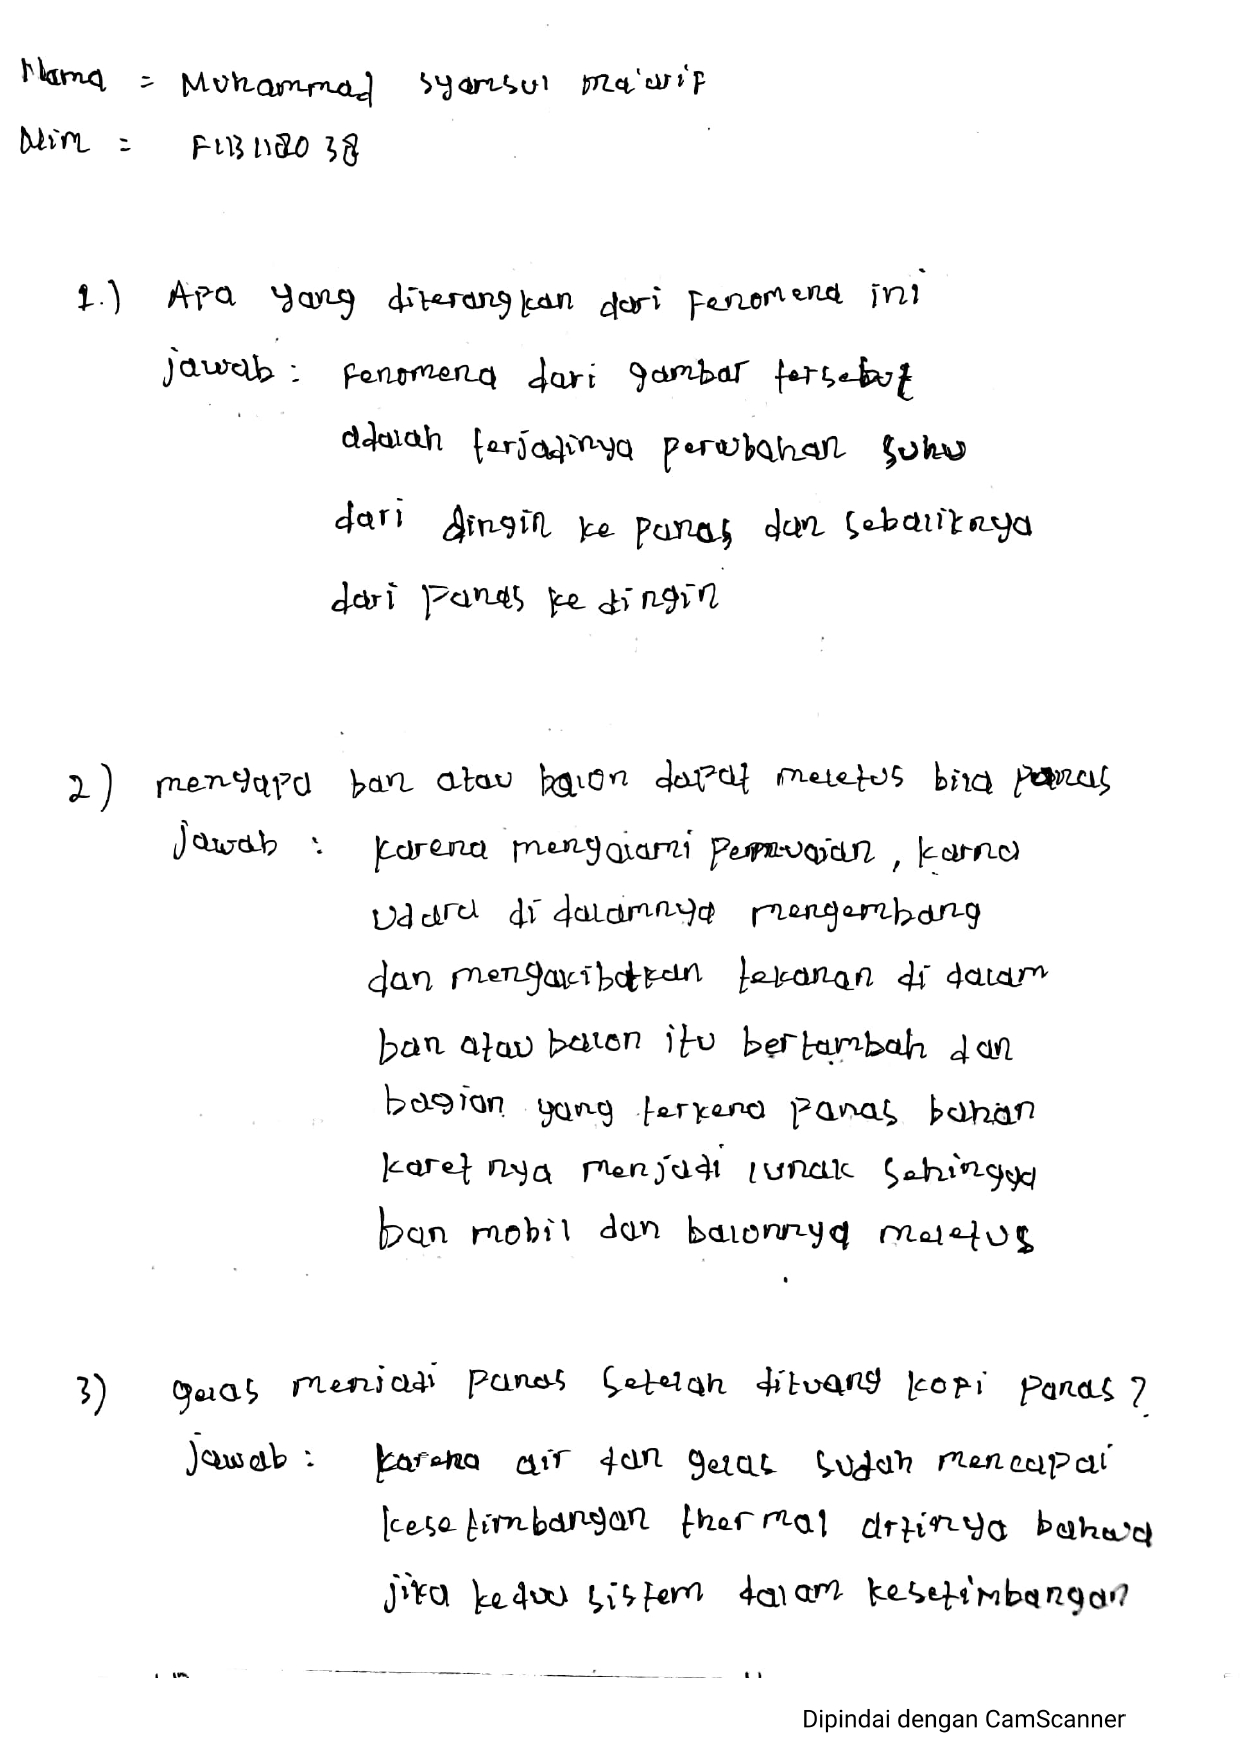 Nama = Muhammad syamsul ma'arif
Nim =
1.) Apa yang diterangkan dari fenomena ini
jawab : fenomena dari gambar tersebut
adalah terjadinya perubahan suhu
dari dingin ke panas dan sebaliknya
dari panas ke dingin
2) mengapa ban atau balon dapat meletus bila panas
jawab : karena mengalami pemuaian, karna
udara di dalamnya mengembang
dan mengakibatkan tekanan di dalam
ban atau balon itu bertambah dan
bagian yang terkena panas bahan
karet nya menjadi lunak sehingga
ban mobil dan balonnya meletus
3) gelas menjadi panas setelah dituang kopi panas?
jawab : karena air dan gelas sudah mencapai
kesetimbangan thermal artinya bahwa
jika kedua sistem dalam kesetimbangan
Dipindai dengan CamScanner